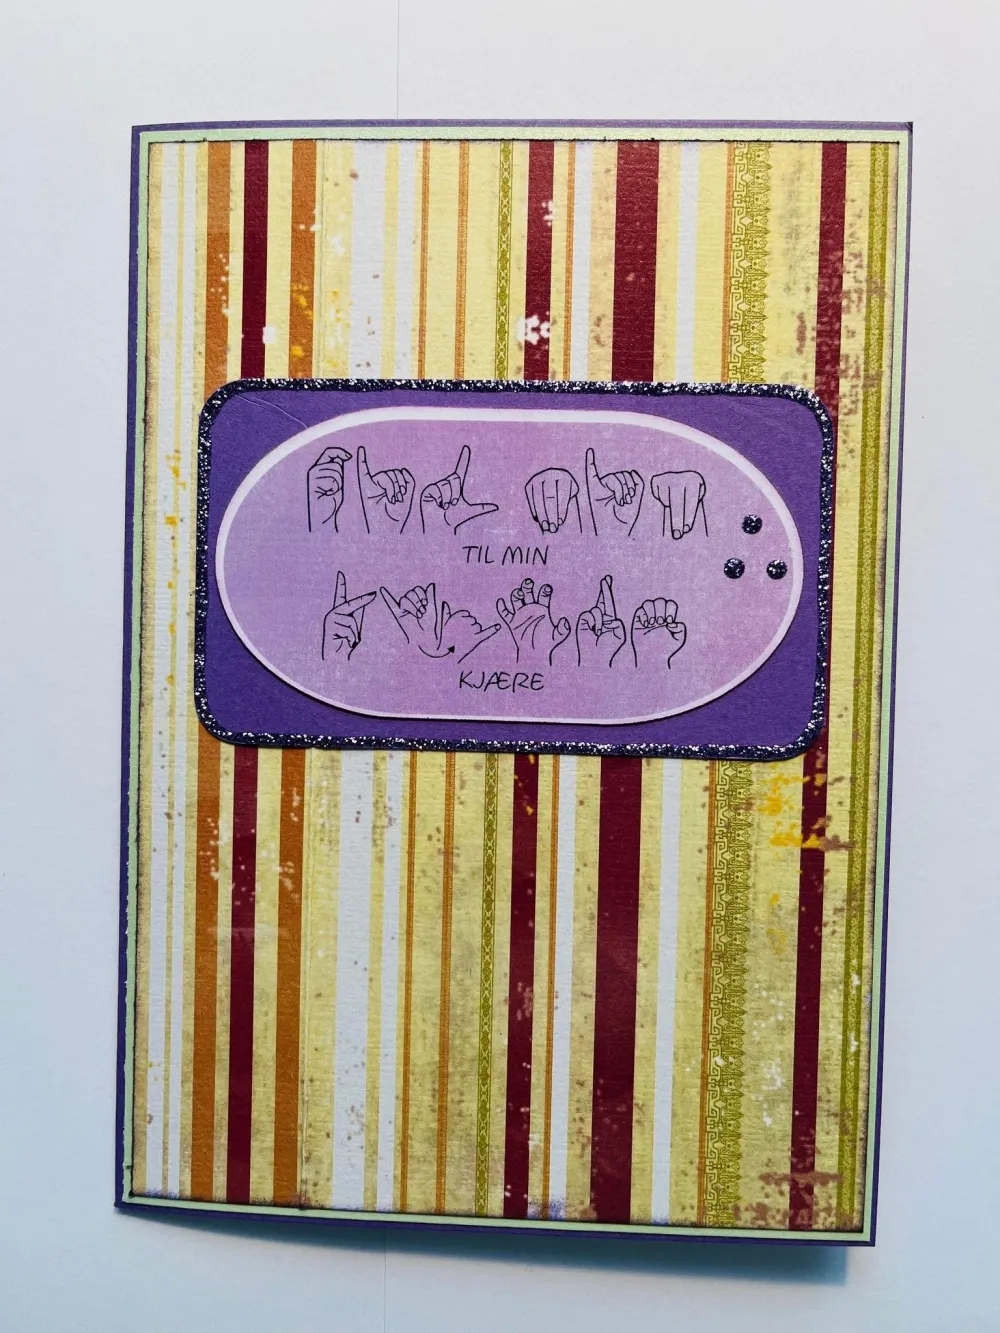 TIL MIN
KJÆRE